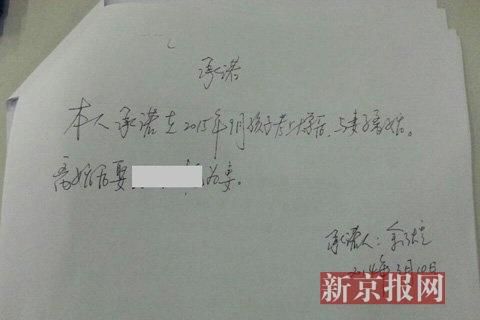 承诺
本人承诺在2015年9月孩子考上大学后,与妻子离婚。
离婚后娶 为妻。
承诺人:
2014年3月10日
新京报网